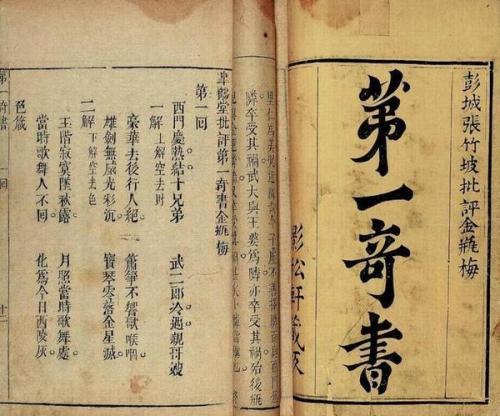 彭城張竹坡批評金瓶梅
苐一奇書
影松軒藏板
隣卒受其禍武大與王婆為隣亦卒受其禍殆後瓶
皐鶴堂批評第一奇書金瓶梅
第一回
西門慶熱結十兄弟　武二郎冷遇親哥嫂
一解　上解空去財
豪華去後行人絕　簫箏不響歌喉咽
雄劍無威光彩沉　寶琴零落金星滅
二解　下解空去色
玉階寂寞墜秋露　月照當時歌舞處
當時歌舞人不回　化為今日西陵灰
色箴
第一奇書　一回　十二